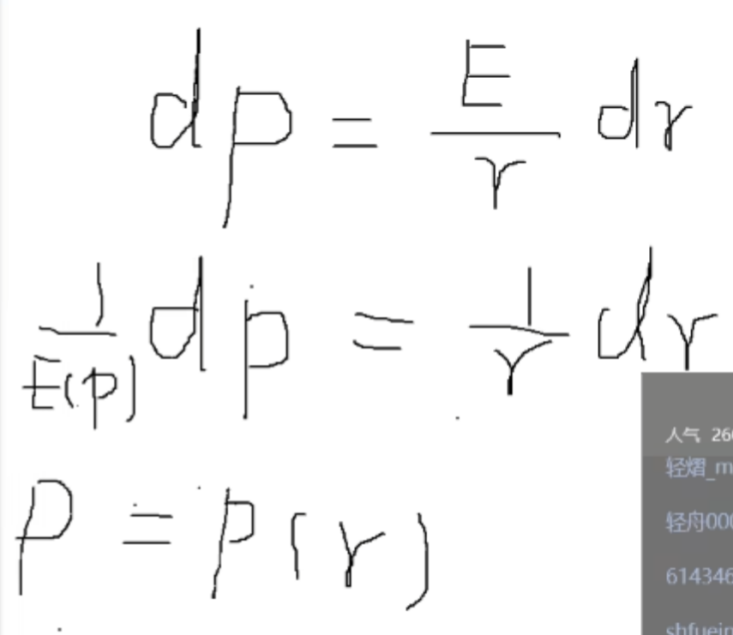 dp = E/r dr
1/E(p) dp = 1/r dr
p = p(r)
人气 260
轻熠_m
轻舟000
614346
shfuein